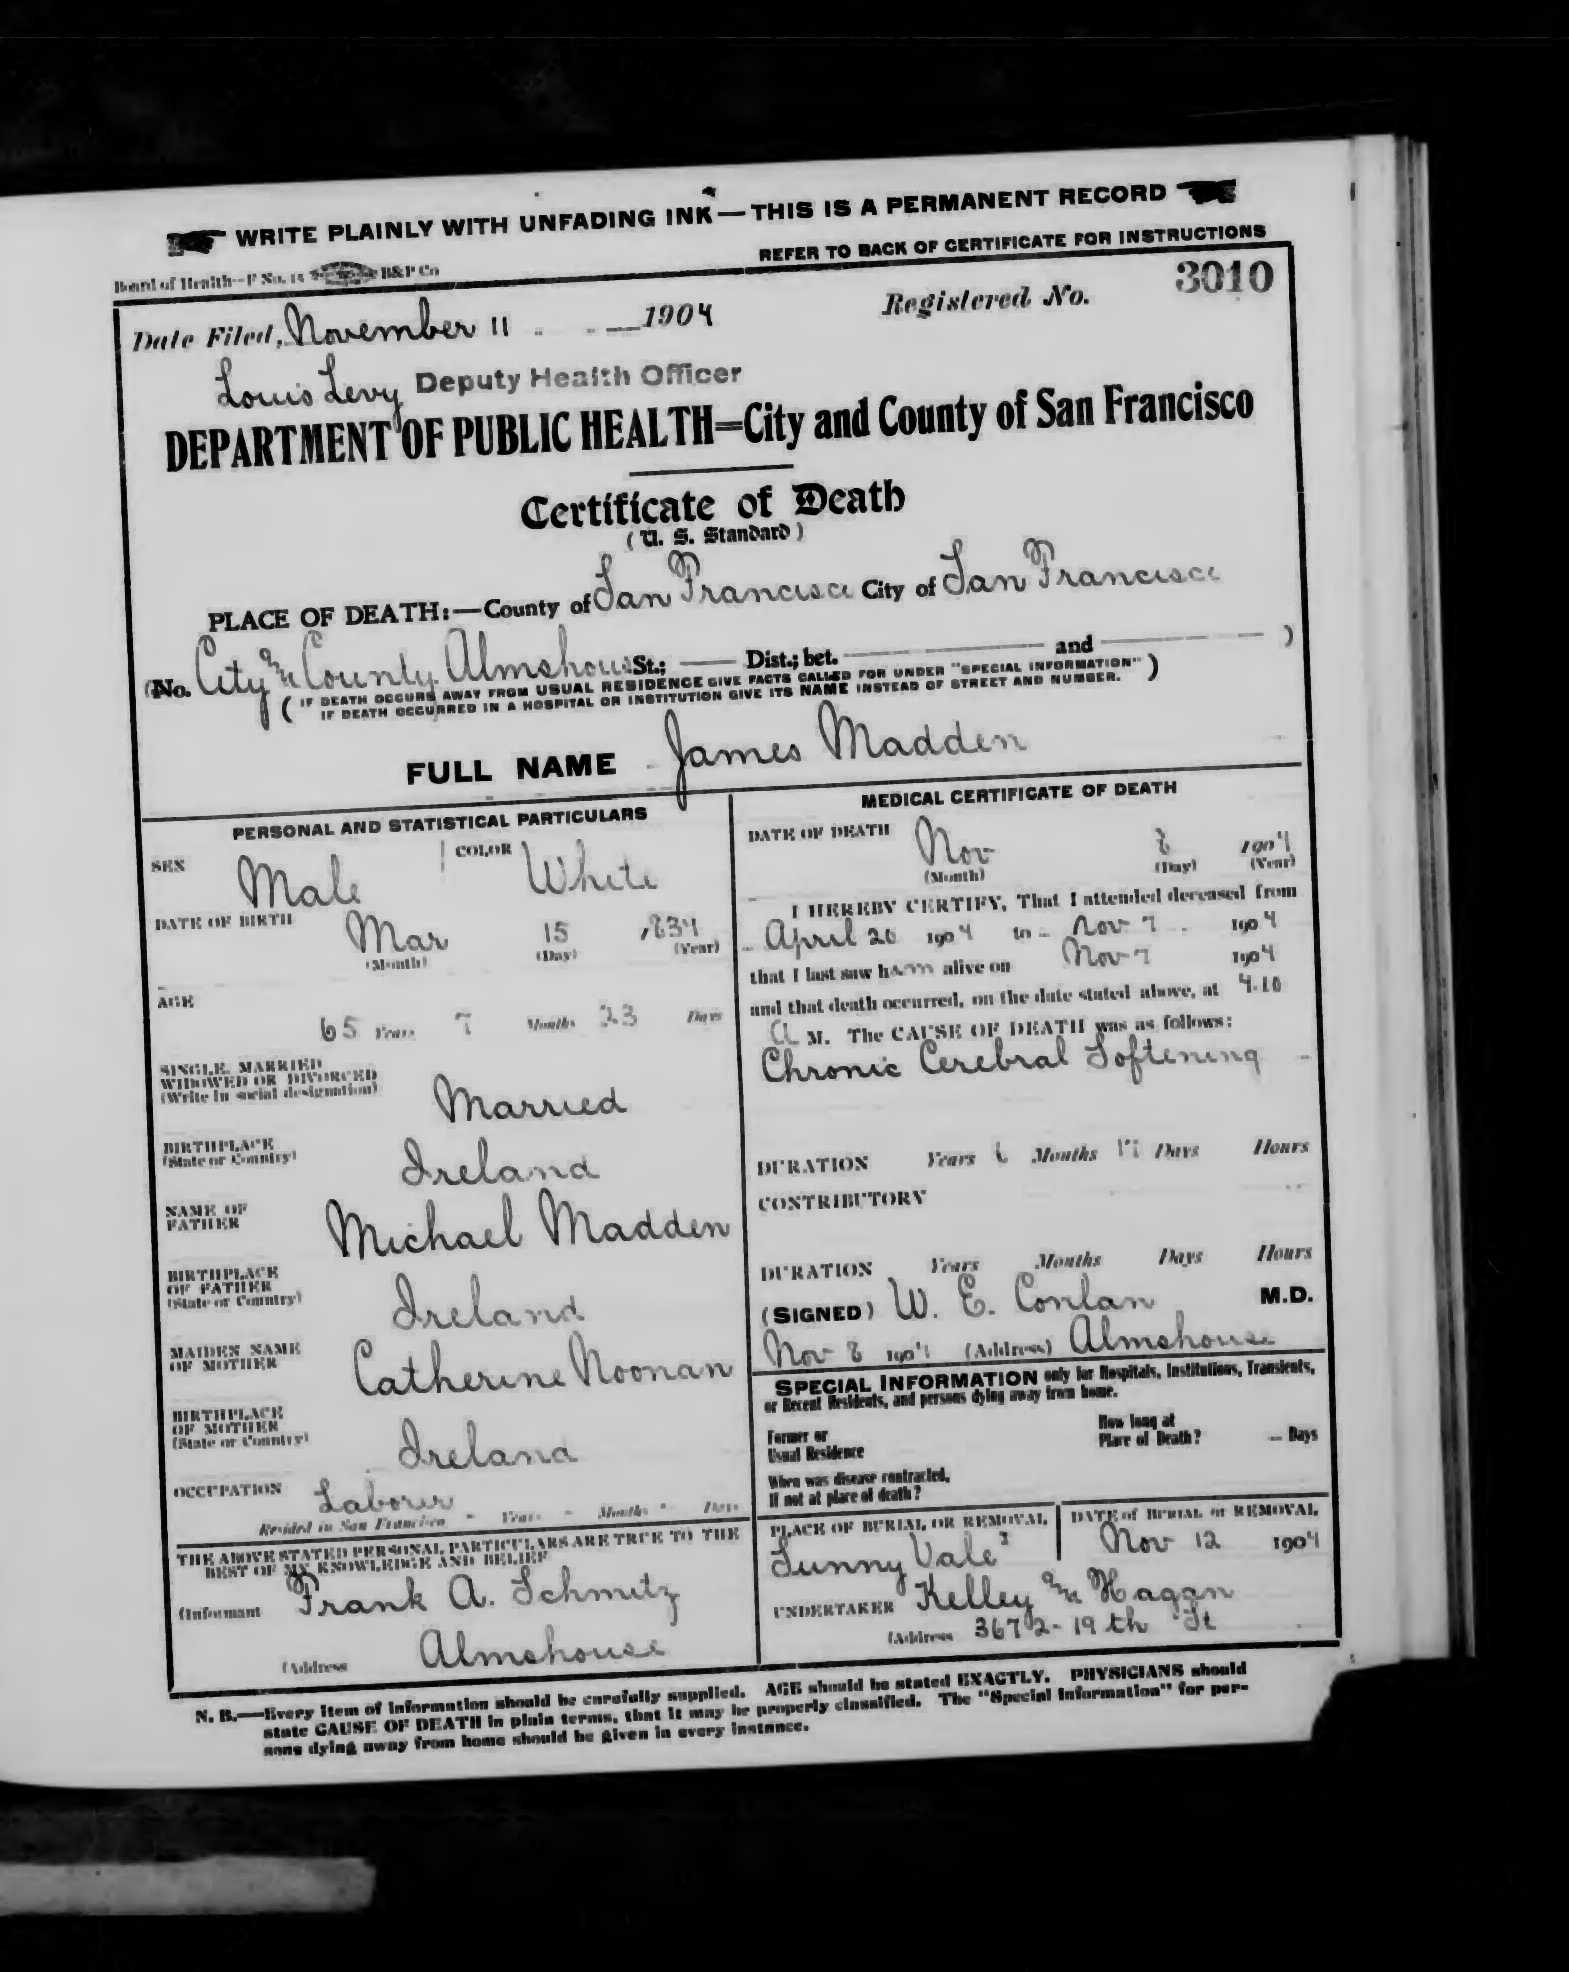 WRITE PLAINLY WITH UNFADING INK—THIS IS A PERMANENT RECORD
REFER TO BACK OF CERTIFICATE FOR INSTRUCTIONS
Board of Health—F No. 15 B&P Co
Date Filed, November 11 1904 Registered No. 3010
Louis Levy Deputy Health Officer
DEPARTMENT OF PUBLIC HEALTH=City and County of San Francisco
Certificate of Death
(U. S. Standard)
PLACE OF DEATH:—County of San Francisco City of San Francisco
(No. City & County Almshouse St.; Dist.; bet. and )
( IF DEATH OCCURS AWAY FROM USUAL RESIDENCE GIVE FACTS CALLED FOR UNDER "SPECIAL INFORMATION" )
IF DEATH OCCURRED IN A HOSPITAL OR INSTITUTION GIVE ITS NAME INSTEAD OF STREET AND NUMBER.
FULL NAME James Madden
PERSONAL AND STATISTICAL PARTICULARS
SEX Male COLOR White
DATE OF BIRTH Mar 15 1834
(Month) (Day) (Year)
AGE
65 Years 7 Months 23 Days
SINGLE, MARRIED
WIDOWED OR DIVORCED
(Write in social designation) Married
BIRTHPLACE
(State or Country) Ireland
NAME OF
FATHER Michael Madden
BIRTHPLACE
OF FATHER
(State or Country) Ireland
MAIDEN NAME
OF MOTHER Catherine Noonan
BIRTHPLACE
OF MOTHER
(State or Country) Ireland
OCCUPATION Laborer
Resided in San Francisco - Years - Months - Days
THE ABOVE STATED PERSONAL PARTICULARS ARE TRUE TO THE
BEST OF MY KNOWLEDGE AND BELIEF
(Informant Frank A. Schmitz
(Address Almshouse
MEDICAL CERTIFICATE OF DEATH
DATE OF DEATH Nov 8 1904
(Month) (Day) (Year)
I HEREBY CERTIFY, That I attended deceased from
April 20 1904 to Nov 7 1904
that I last saw him alive on Nov 7 1904
and that death occurred, on the date stated above, at 4.10
A M. The CAUSE OF DEATH was as follows:
Chronic Cerebral Softening
DURATION Years 6 Months 17 Days Hours
CONTRIBUTORY
DURATION Years Months Days Hours
(SIGNED) W. E. Conlan M.D.
Nov 8 1904 (Address) Almshouse
SPECIAL INFORMATION only for Hospitals, Institutions, Transients,
or Recent Residents, and persons dying away from home.
Former or
Usual Residence
How long at
Place of Death? Days
When was disease contracted,
If not at place of death?
PLACE OF BURIAL OR REMOVAL
Sunny Vale
DATE of BURIAL or REMOVAL
Nov 12 1904
UNDERTAKER Kelley & Hagan
(Address 3672-19th St
N. B.—Every item of information should be carefully supplied. AGE should be stated EXACTLY. PHYSICIANS should
state CAUSE OF DEATH in plain terms, that it may be properly classified. The "Special Information" for per-
sons dying away from home should be given in every instance.